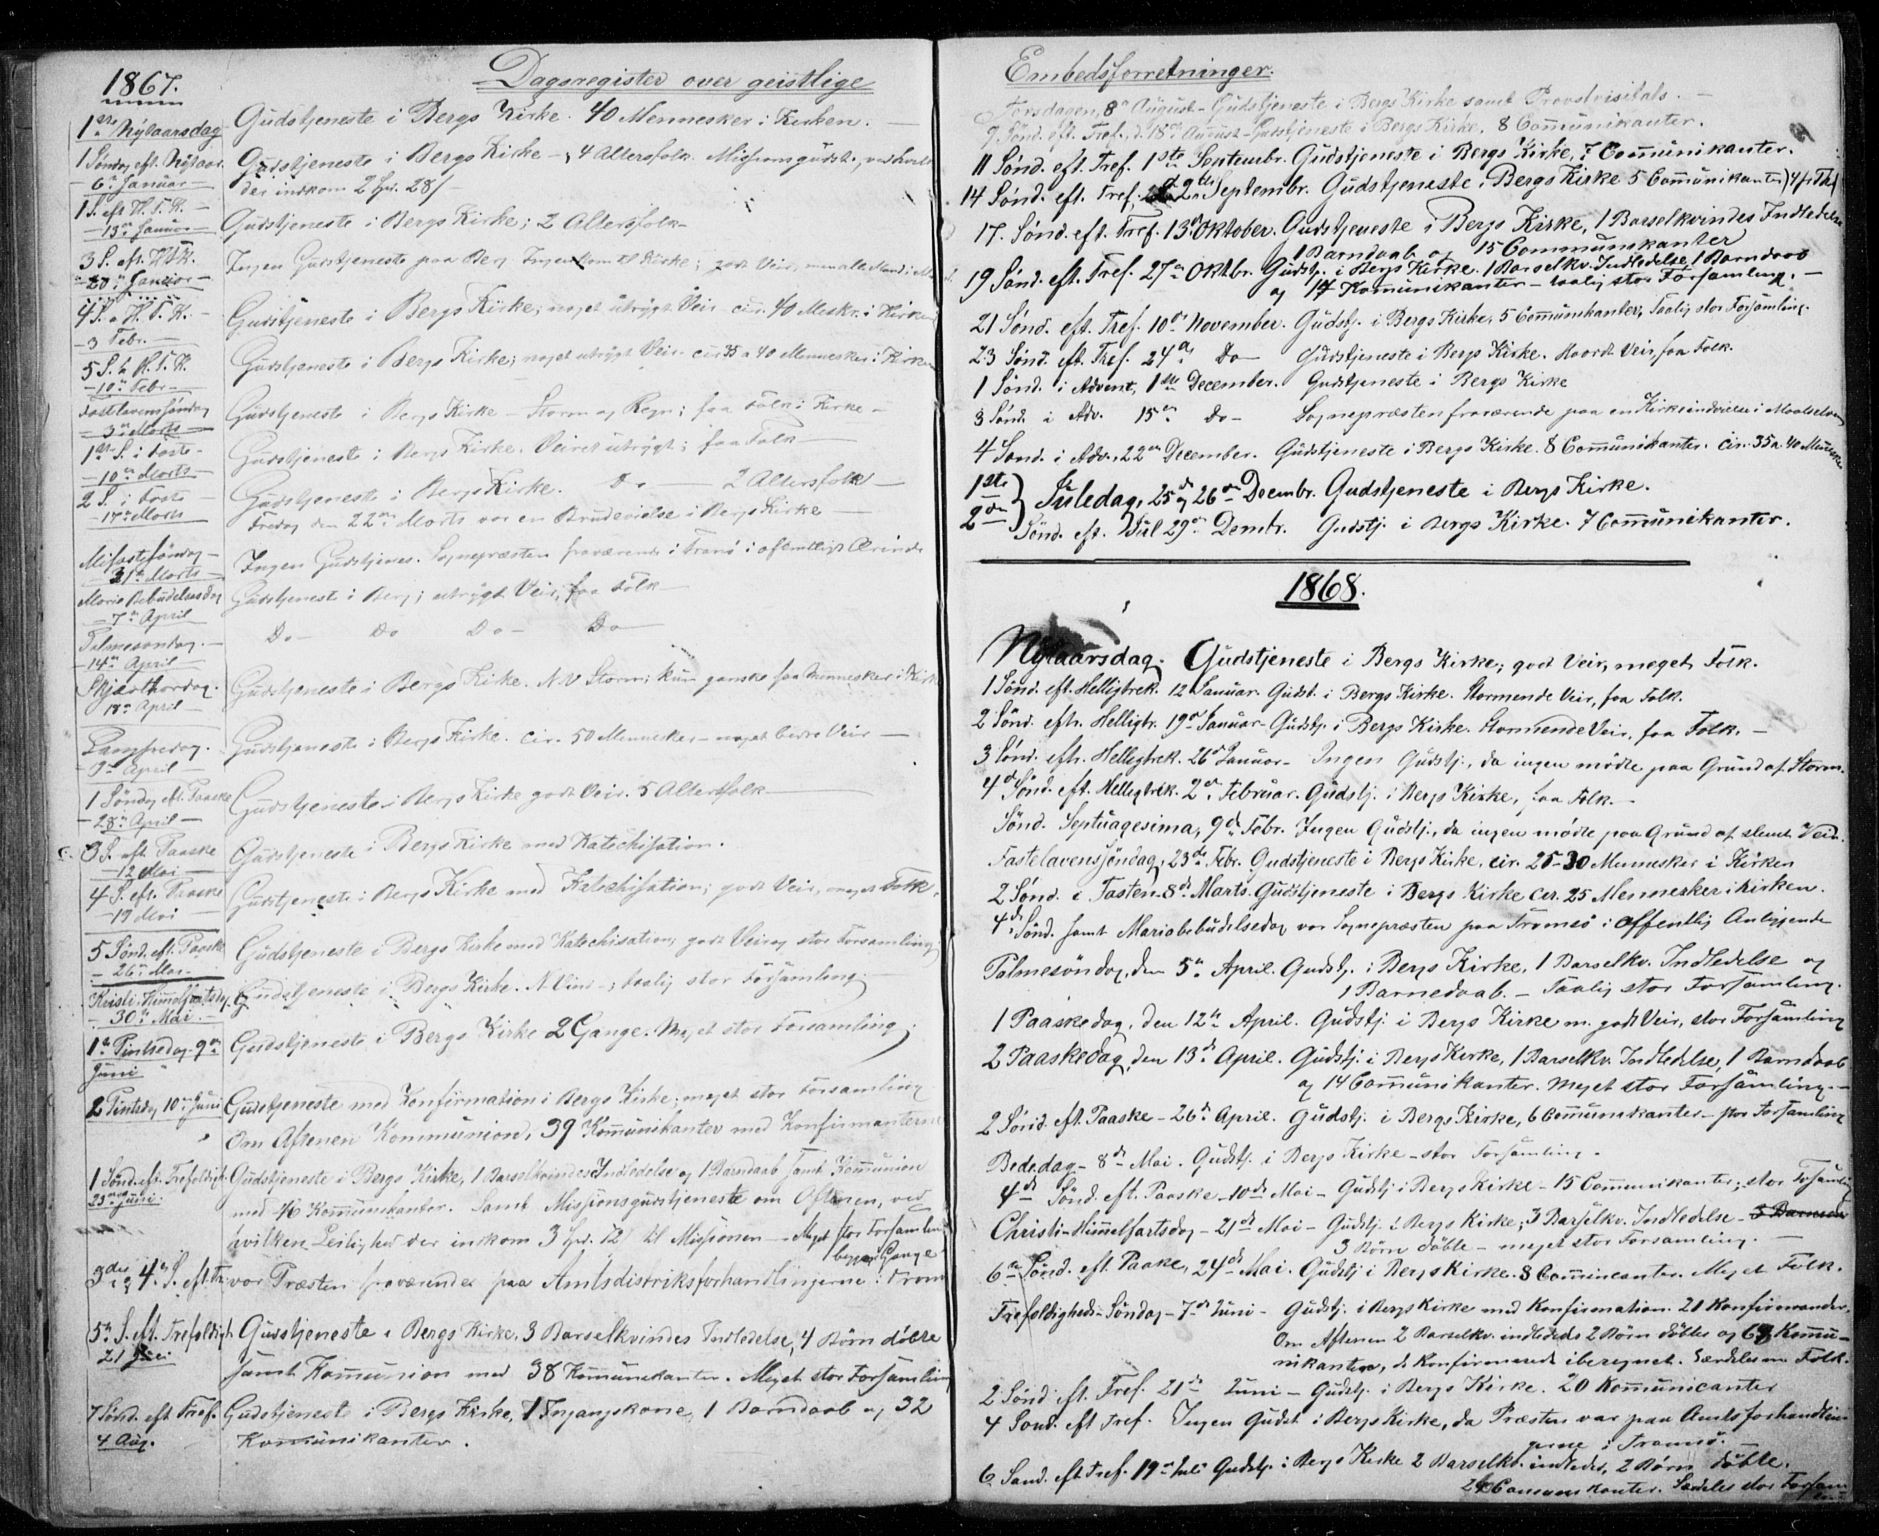 1867.
Dagsregister over geistlige
1ste Nytaarsdag Gudstjeneste i Bergs Kirke. 40 Mennesker i Kirken.
1 Søndag eft. Nytaar Gudstjeneste i Bergs Kirke - 4 Altersfolk. Missionsgudstj., ved hvilk
- 6te Januar - der indkom 2 Spd. 28 ß -
1 S. eft. H. T. K. - Gudstjeneste i Bergs Kirke; 2 Altersfolk -
- 13de Januar -
3 S. eft. H.T.K. Ingen Gudstjeneste paa Berg. Ingen kom til Kirke; godt Veir, men alle Mænd i
- 20de Januar -
4 S. e. H. T. K. - Gudstjeneste i Bergs Kirke; noget utrygt Veir cir. 40 Meskr. i Kirken
- 3 Febr. -
5 S. e. H. T. K. Gudstjeneste i Bergs Kirke; noget utrygt Veir. cir 35 a 40 Mennesker i Kirken
- 10de Febr -
Fastelavenssøndag Gudstjeneste i Bergs Kirke - Storm og Regn; faa Folk i Kirke -
- 3de Marts -
1ste S. i Faste - Gudstjeneste i Bergs Kirke. Veiret utrygt; faa Folk
- 10de Marts -
2 S. i Faste - Gudstjeneste i Bergs Kirke. Do - 2 Altersfolk -
- 17de Marts Fredag den 22de Marts var en Brudevielse i Bergs Kirke -
Mifastesøndag - Ingen Gudstjenes. Sognepræsten fraværende i Tranø i offentligt Ærinde
- 31te Marts -
Maria Bebudelsesdag Gudstjenest i Berg; utrygt Veir, faa Folk -
- 7de April
Palmesøndag - Do - Do Do - Do -
- 14de April -
Skjærthorsdag - Gudstjeneste i Bergs Kirke. N.V Storm; kun ganske faa Mennesker i Kirk
18de April -
Langfredag. Gudstjeneste i Bergs Kirke. cir. 50 Mennesker - noget bedre Veir -
April -
1 Søndag eft. Paaske Gudstjeneste i Bergs Kirke godt Veir. 5 Altersfolk -
- 28de April -
3 S. eft. Paaske Gudstjeneste i Bergs Kirke med Katechisation.
- 12 Mai -
4 S. eft. Paaske Gudstjeneste i Bergs Kirke med Katechisation; godt Veir, meget Folk.
- 19 Mai -
5 Sønd. eft. Paaske Gudstjeneste i Bergs Kirke med Katechisation; godt Veir og stor Forsamling
- 26de Mai -
Kristi Himmelfartsdag Gudstjeneste i Bergs Kirke. N. Vind -; taalig stor Forsamling.
- 30te Mai. -
1ste Pintsedag. 9de Gudstjeneste i Bergs Kirke 2 Gange. Meget stor Forsamling.
Juni
2 Pintsedag 10de Juni Gudstjeneste med Konfirmation i Bergs Kirke; meget stor Forsamling
Om Aftenen Kommunion, 39 Kommunikanter med Konfirmanterne
1 Sønd. eft. Trefoldigh. Gudstjeneste i Bergs Kirke, 1 Barselkvindes Indledelse og 1 Barndaab samt Kommunion
23de Juni. med 46 Kommunikanter. Samt Missionsgudstjeneste om Aftenen, ved
hvilken Leilighed der indkom 3 Spd. 12 ß til Missionen - Meget stor Forsamling
begge Gange
3die og 4. S. eft. Tr. var Præsten fraværende paa Amtsdistriktsforhandlingerne i Trom
5te S. eft. Trefoldigh. Gudstjeneste i Bergs Kirke, 3 Barselkvindes Indledelse, 4 Børn døbte
21 Juli samt Kommunion med 38 Kommunikanter. Meget stor Forsamling
7 Sønd. eft. Tref. Gudstjeneste i Bergs Kirke, 1 Indgangskone, 1 Barndaab og 32
4 Aug. Kommunikanter.
Embedsforretninger.
Torsdagen, 8de August - Gudstjeneste i Bergs Kirke samt Provstvisitats. -
9. Sønd. eft. Tref., d. 18de August - Gudstjeneste i Bergs Kirke, 8 Communikanter.
11 Sønd. eft. Tref. 1ste Septembr. Gudstjeneste i Bergs Kirke, 7 Communikanter.
14 Sønd. eft. Tref. Septembr. Gudstjeneste i Bergs Kirke 5 Communikanter
17. Sønd. eft. Tref. 13de Oktober. Gudstjeneste i Bergs Kirke, 1 Barselkvindes Indledelse
1 Barndaab og 15 Communikanter
19 Sønd. eft. Tref. 27de Oktbr. Gudstj. i Bergs Kirke. 1 Barselkv. Indledelse, 1 Barndaab
og 14 Kommunikanter - taalig stor Forsamling. -
21 Sønd. eft. Tref. 10de November. Gudstj. i Bergs Kirke, 5 Communikanter, Taalig stor Forsamling.
23 Sønd. eft. Tref. 24de Do - Gudstjeneste i Bergs Kirke. Haardt Veir, faa Folk.
1 Sønd. i Advent, 1ste December. Gudstjeneste i Bergs Kirke
3 Sønd. i Adv. 15de Do - Sognepræsten fraværende paa en Kirkeindvielse i Maalselven
4 Sønd. i Adv., 22de December. Gudstjeneste i Bergs Kirke. 8 Communikanter. cir. 35 a 40 Mennesker
1ste
2den } Juledag, 25de og 26de Decembr. Gudstjeneste i Bergs Kirke.
Sønd. eft. Jul 29de Decmbr. Gudstj. i Bergs Kirke. 7 Communikanter.
1868.
Nytaarsdag. Gudstjeneste i Bergs Kirke; godt Veir, meget Folk.
1 Sønd. eft. Helligtrek. 12 Januar. Gudst. i Bergs Kirke. Stormende Veir, faa Folk.
2 Sønd. efth. Helligtr. 19de Januar - Gudstj. i Bergs Kirke. Stormende Veir, faa Folk. -
3 Sønd. efth. Helligtrek. 26de Januar - Ingen Gudstj., da ingen mødte paa Grund af Storm.
4de Sønd. eft. Helligtrek. 2den Februar. Gudstj. i Bergs Kirke, faa Folk. -
Sønd. Septuagesima, 9de Febr. Ingen Gudstj., da ingen mødte paa Grund af slemt Veir.
Fastelavenssøndag, 23de Febr. Gudstjeneste i Bergs Kirke, cir. 25-30 Mennesker i Kirken
2 Sønd. i Fasten - 8de Marts. Gudstjeneste i Bergs Kirke cir. 25 Mennesker i Kirken.
4de Sønd. samt Mariabebudelsesdag var Sognepræsten paa Tromsø i offentlig Anliggende
Palmesøndag, den 5te April. Gudstj. i Bergs Kirke, 1 Barselkv. Indledelse og
1 Barnedaab. - Taalig stor Forsamling.
1 Paaskedag, den 12te April. Gudstj. i Bergs Kirke m. godt Veir, stor Forsamling
2 Paaskedag, den 13de April. Gudstj. i Bergs Kirke, 1 Barselkv. Indledelse, 1 Barndaab
og 14 Communikanter. Meget stor Forsamling. -
2 Sønd. eft. Paaske - 26de April. Gudstj. i Bergs Kirke, 6 Communikanter - stor Forsamling
Bededag - 8de Mai. Gudstj. i Bergs Kirke - stor Forsamling -
4de Sønd. eft. Paaske - 10de Mai - Gudstj. i Bergs Kirke - 15 Communikanter; stor Forsamling
Christi-Himmelfartsdag - 21de Mai - Gudstj. i Bergs Kirke; 3 Barselkv. Indledelse -
3 Børn døbte - meget stor Forsamling. -
6te Sønd. eft. Paaske, 24de Mai. Gudstj i Bergs Kirke. 8 Communicanter. Meget Folk.
Trefoldigheds-Søndag - 7de Juni - Gudstj. i Bergs Kirke med Konfirmation. 21 Konfirmander,
Om Aftenen 2 Barselkv. indledede 2 Børn døbtes og 68 Kommu-
nikantere, de Konfirmerede iberegnet. Særdeles m Folk.
2 Sønd eft. Tref. 21de Juni - Gudstj. i Bergs Kirke. 20 Kommunicanter
4 Sønd. eft Tref. Ingen Gudst i Bergs Kirke, da Præsten var paa Amtsforhandlin-
gerne i Tromsø.
6. Sønd. eft Tref. 19de Juli Gudstj. i Bergs Kirke 2 Barselkv. indledet, 2 Børn døbte.
Communikanter. Særdeles stor Forsam